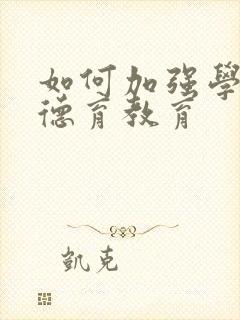 如何加强學
德育教育
凱克